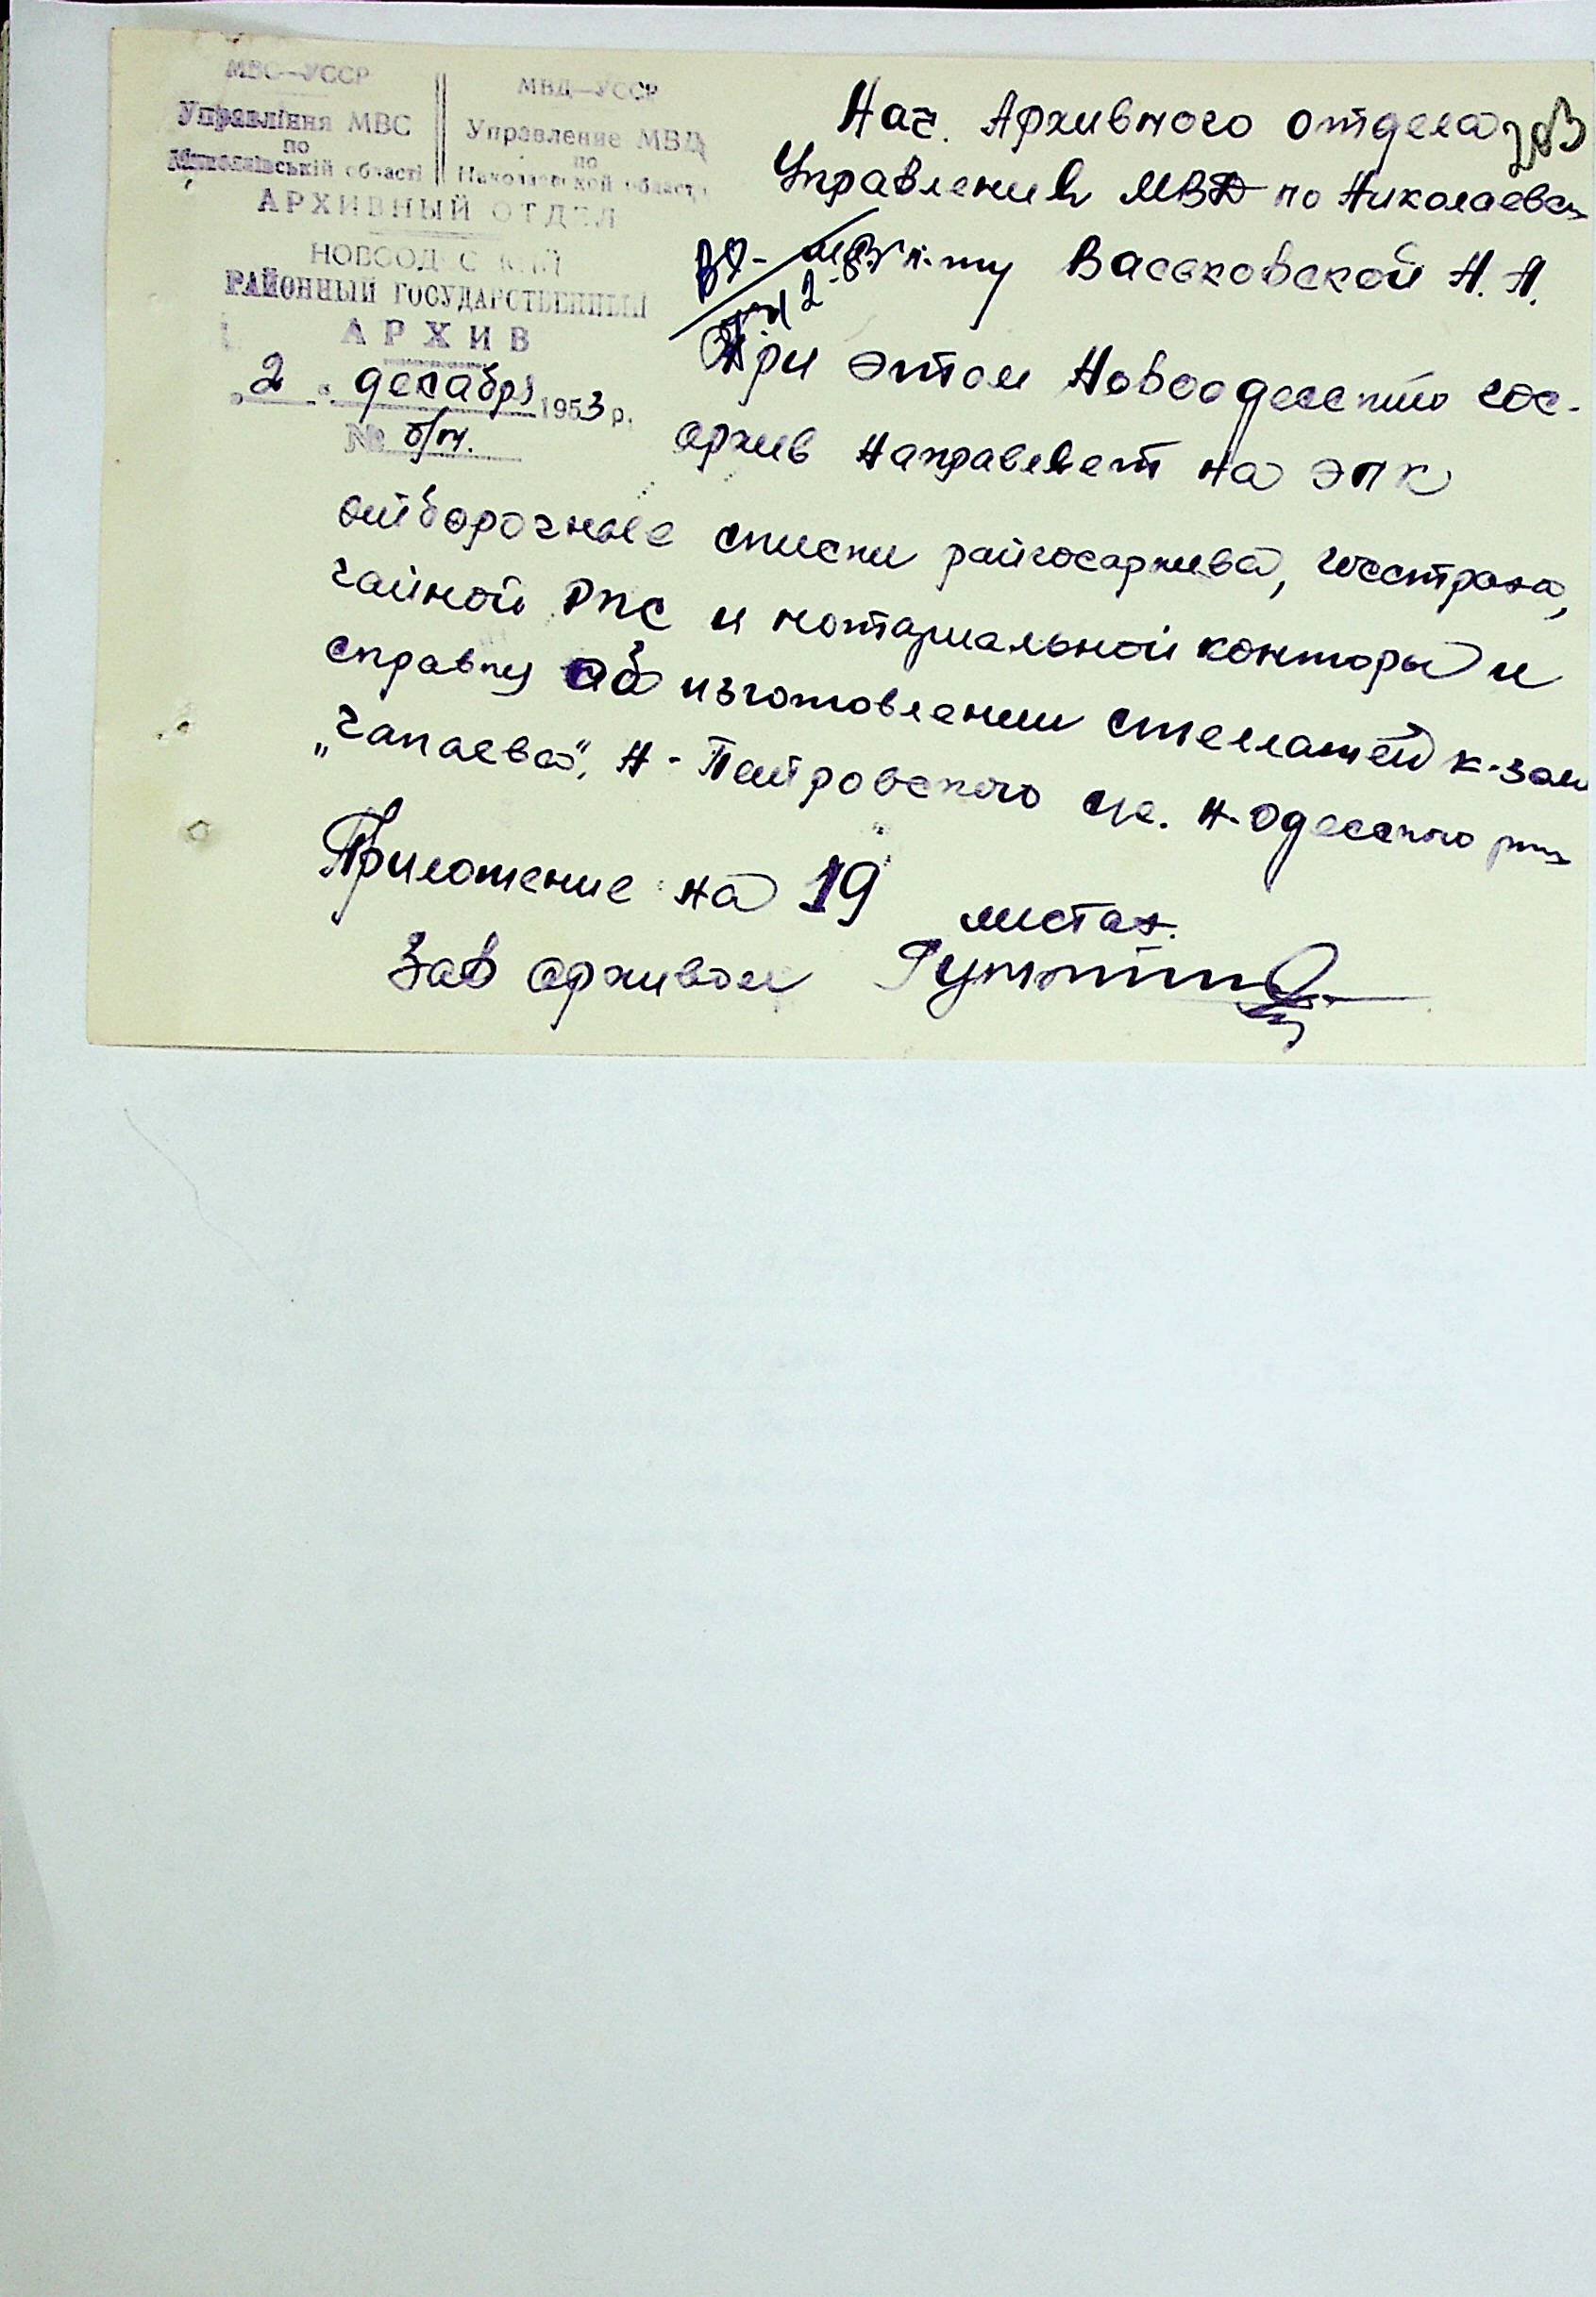 МВС—УССР
Управління МВС
по
Миколаївській області
МВД—УССР
Управление МВД
по
Николаевской области
АРХИВНЫЙ ОТДЕЛ
НОВООДЕССКИЙ
РАЙОННЫЙ ГОСУДАРСТВЕННЫЙ
АРХИВ
"2" декабря 1953 р.
№ б/н.
Нач. Архивного отдела
Управления МВД по Николаевск
Васьковской А. А.
При этом Новоодесский гос-
архив направляет на ЭПК
отборочные списки райгосархива, госстраха,
чайной РПС и нотариальной конторы и
справку об изготовлении стеллажей к-зам
"Чапаева", Н-Петровского с/с. Н-Одесского р-на
Приложение на 19 листах.
Зав архивом